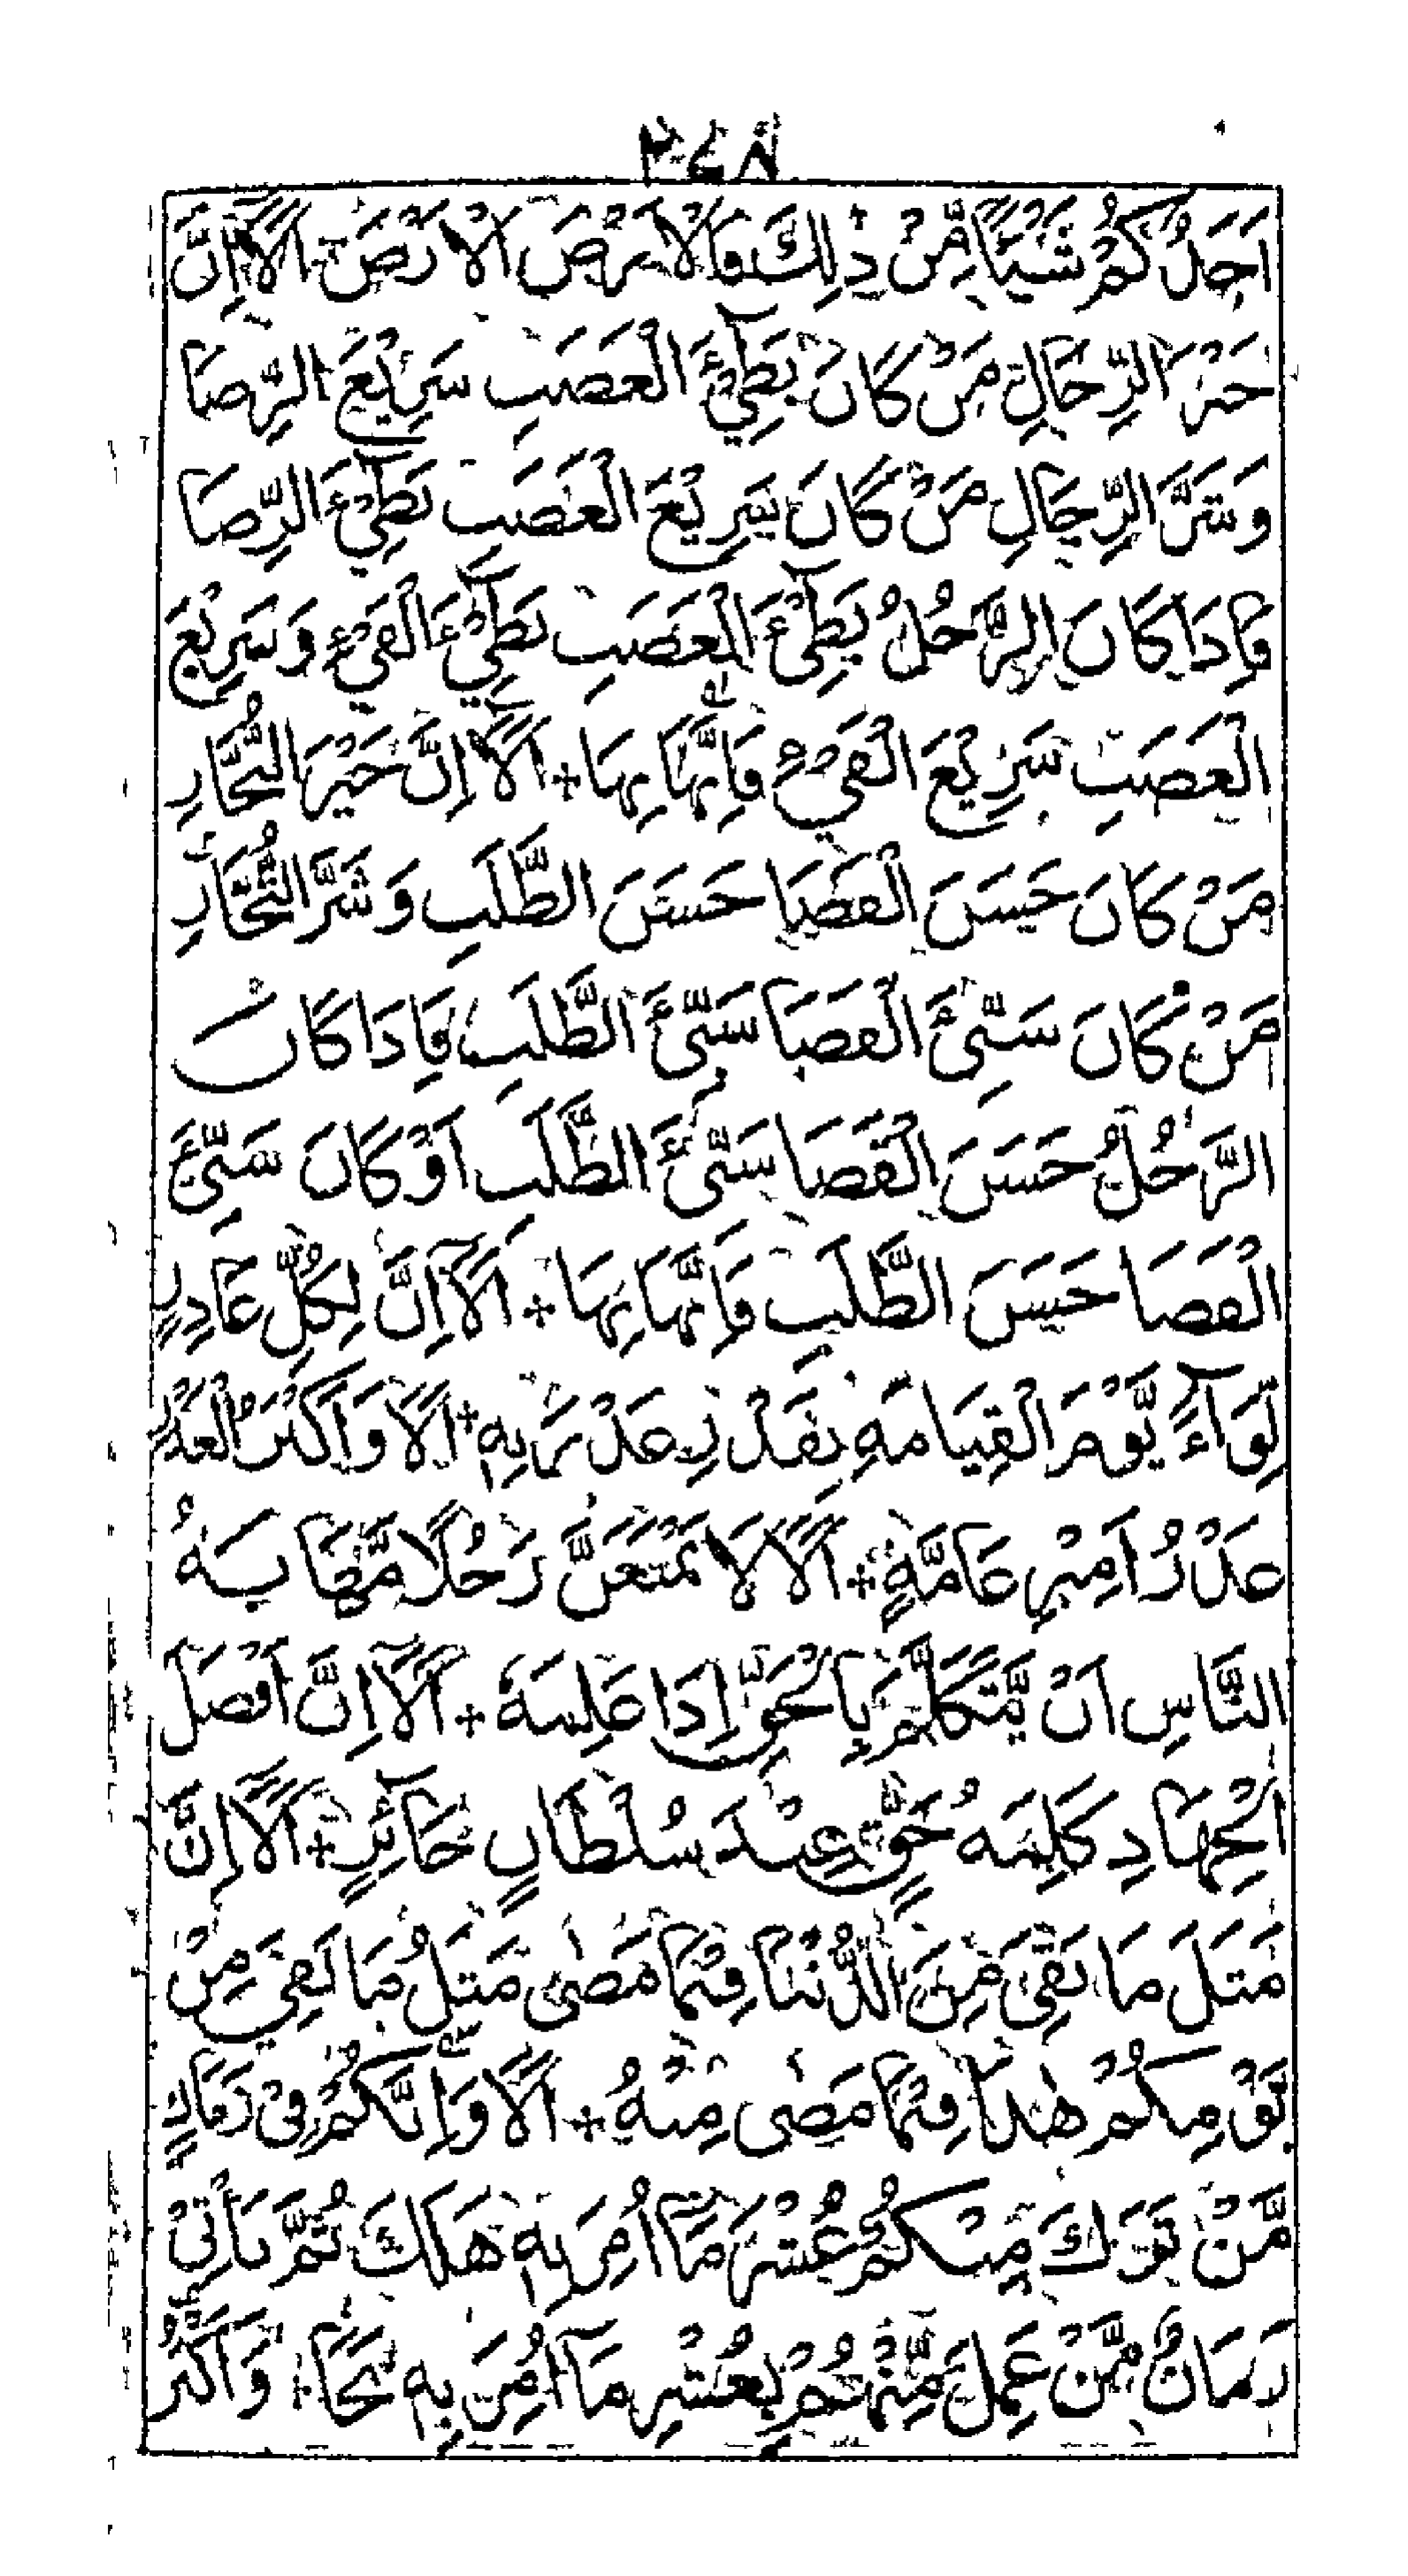 ٢٤٨
اَحَدُكُمْ شَيْئًا مِّنْ ذٰلِكَ فَالْاَرْضَ الْاَرْضَ اَلَآ اِنَّ
خَيْرَ الرِّجَالِ مَنْ كَانَ بَطِيْٓءَ الْغَضَبِ سَرِيْعَ الرِّضَا
وَشَرَّ الرِّجَالِ مَنْ كَانَ سَرِيْعَ الْغَضَبِ بَطِيْٓءَ الرِّضَا
فَاِذَا كَانَ الرَّجُلُ بَطِيْٓءَ الْغَضَبِ بَطِيْٓءَ الْفَيْءِ وَسَرِيْعَ
الْغَضَبِ سَرِيْعَ الْفَيْءِ فَاِنَّهَا بِهَا + اَلَآ اِنَّ خَيْرَ التُّجَّارِ
مَنْ كَانَ حَسَنَ الْقَضَا حَسَنَ الطَّلَبِ وَشَرَّ التُّجَّارِ
مَنْ كَانَ سَيِّئَ الْقَضَا سَيِّئَ الطَّلَبِ فَاِذَا كَانَ
الرَّجُلُ حَسَنَ الْقَضَا سَيِّئَ الطَّلَبِ اَوْ كَانَ سَيِّئَ
الْقَضَا حَسَنَ الطَّلَبِ فَاِنَّهَا بِهَا + اَلَآ اِنَّ لِكُلِّ غَادِرٍ
لِّوَآءً يَّوْمَ الْقِيَامَةِ بِقَدْرِ غَدْرَتِهٖ + اَلَا وَاَكْبَرُ الْغَدْرِ
غَدْرُ اَمِيْرِ عَامَّةٍ + اَلَا لَا يَمْنَعَنَّ رَجُلًا مَّهَابَةُ
النَّاسِ اَنْ يَّتَكَلَّمَ بِالْحَقِّ اِذَا عَلِمَهٗ + اَلَآ اِنَّ اَفْضَلَ
الْجِهَادِ كَلِمَةُ حَقٍّ عِنْدَ سُلْطَانٍ جَآئِرٍ + اَلَآ اِنَّ
مَثَلَ مَا بَقِيَ مِنَ الدُّنْيَا فِيْمَا مَضٰى مَثَلُ مَا بَقِيَ مِنْ
يَوْمِكُمْ هٰذَا فِيْمَا مَضٰى مِنْهُ + اَلَا وَاِنَّكُمْ فِيْ زَمَانٍ
مَّنْ تَرَكَ مِنْكُمْ عُشْرَ مَآ اُمِرَ بِهٖ هَلَكَ ثُمَّ يَاْتِيْ
زَمَانٌ مَّنْ عَمِلَ مِنْهُمْ بِعُشْرِ مَآ اُمِرَ بِهٖ نَجَا + وَاَكْثَرُ